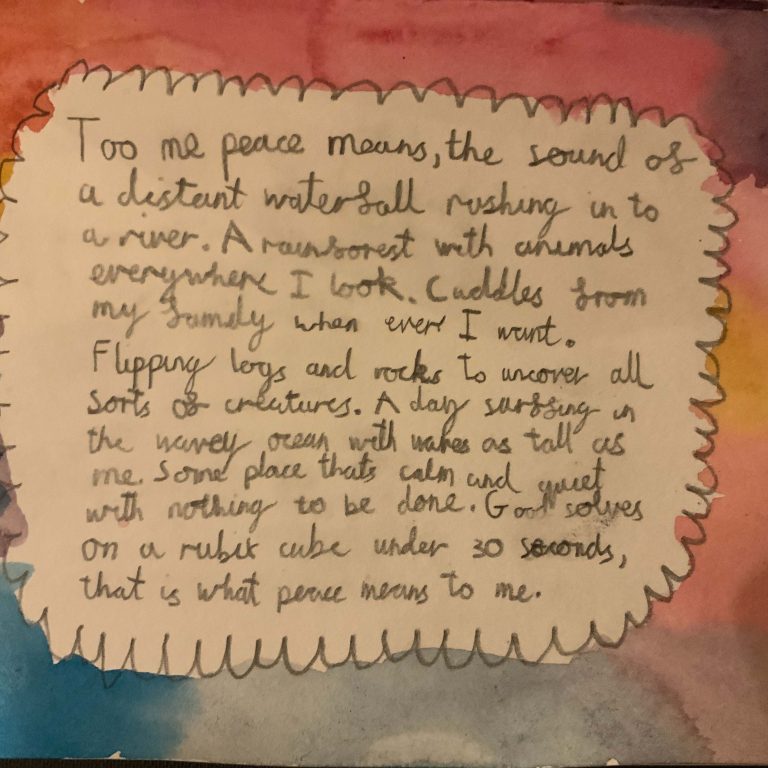 Too me peace means, the sound of
a distant waterfall rushing in to
a river. A rainforest with animals
everywhere I look. Cuddles from
my family when ever I want.
Flipping logs and rocks to uncover all
sorts of creatures. A day surfing in
the wavey ocean with waves as tall as
me. Some place thats calm and quiet
with nothing to be done. Good solves
on a rubix cube under 30 seconds,
that is what peace means to me.